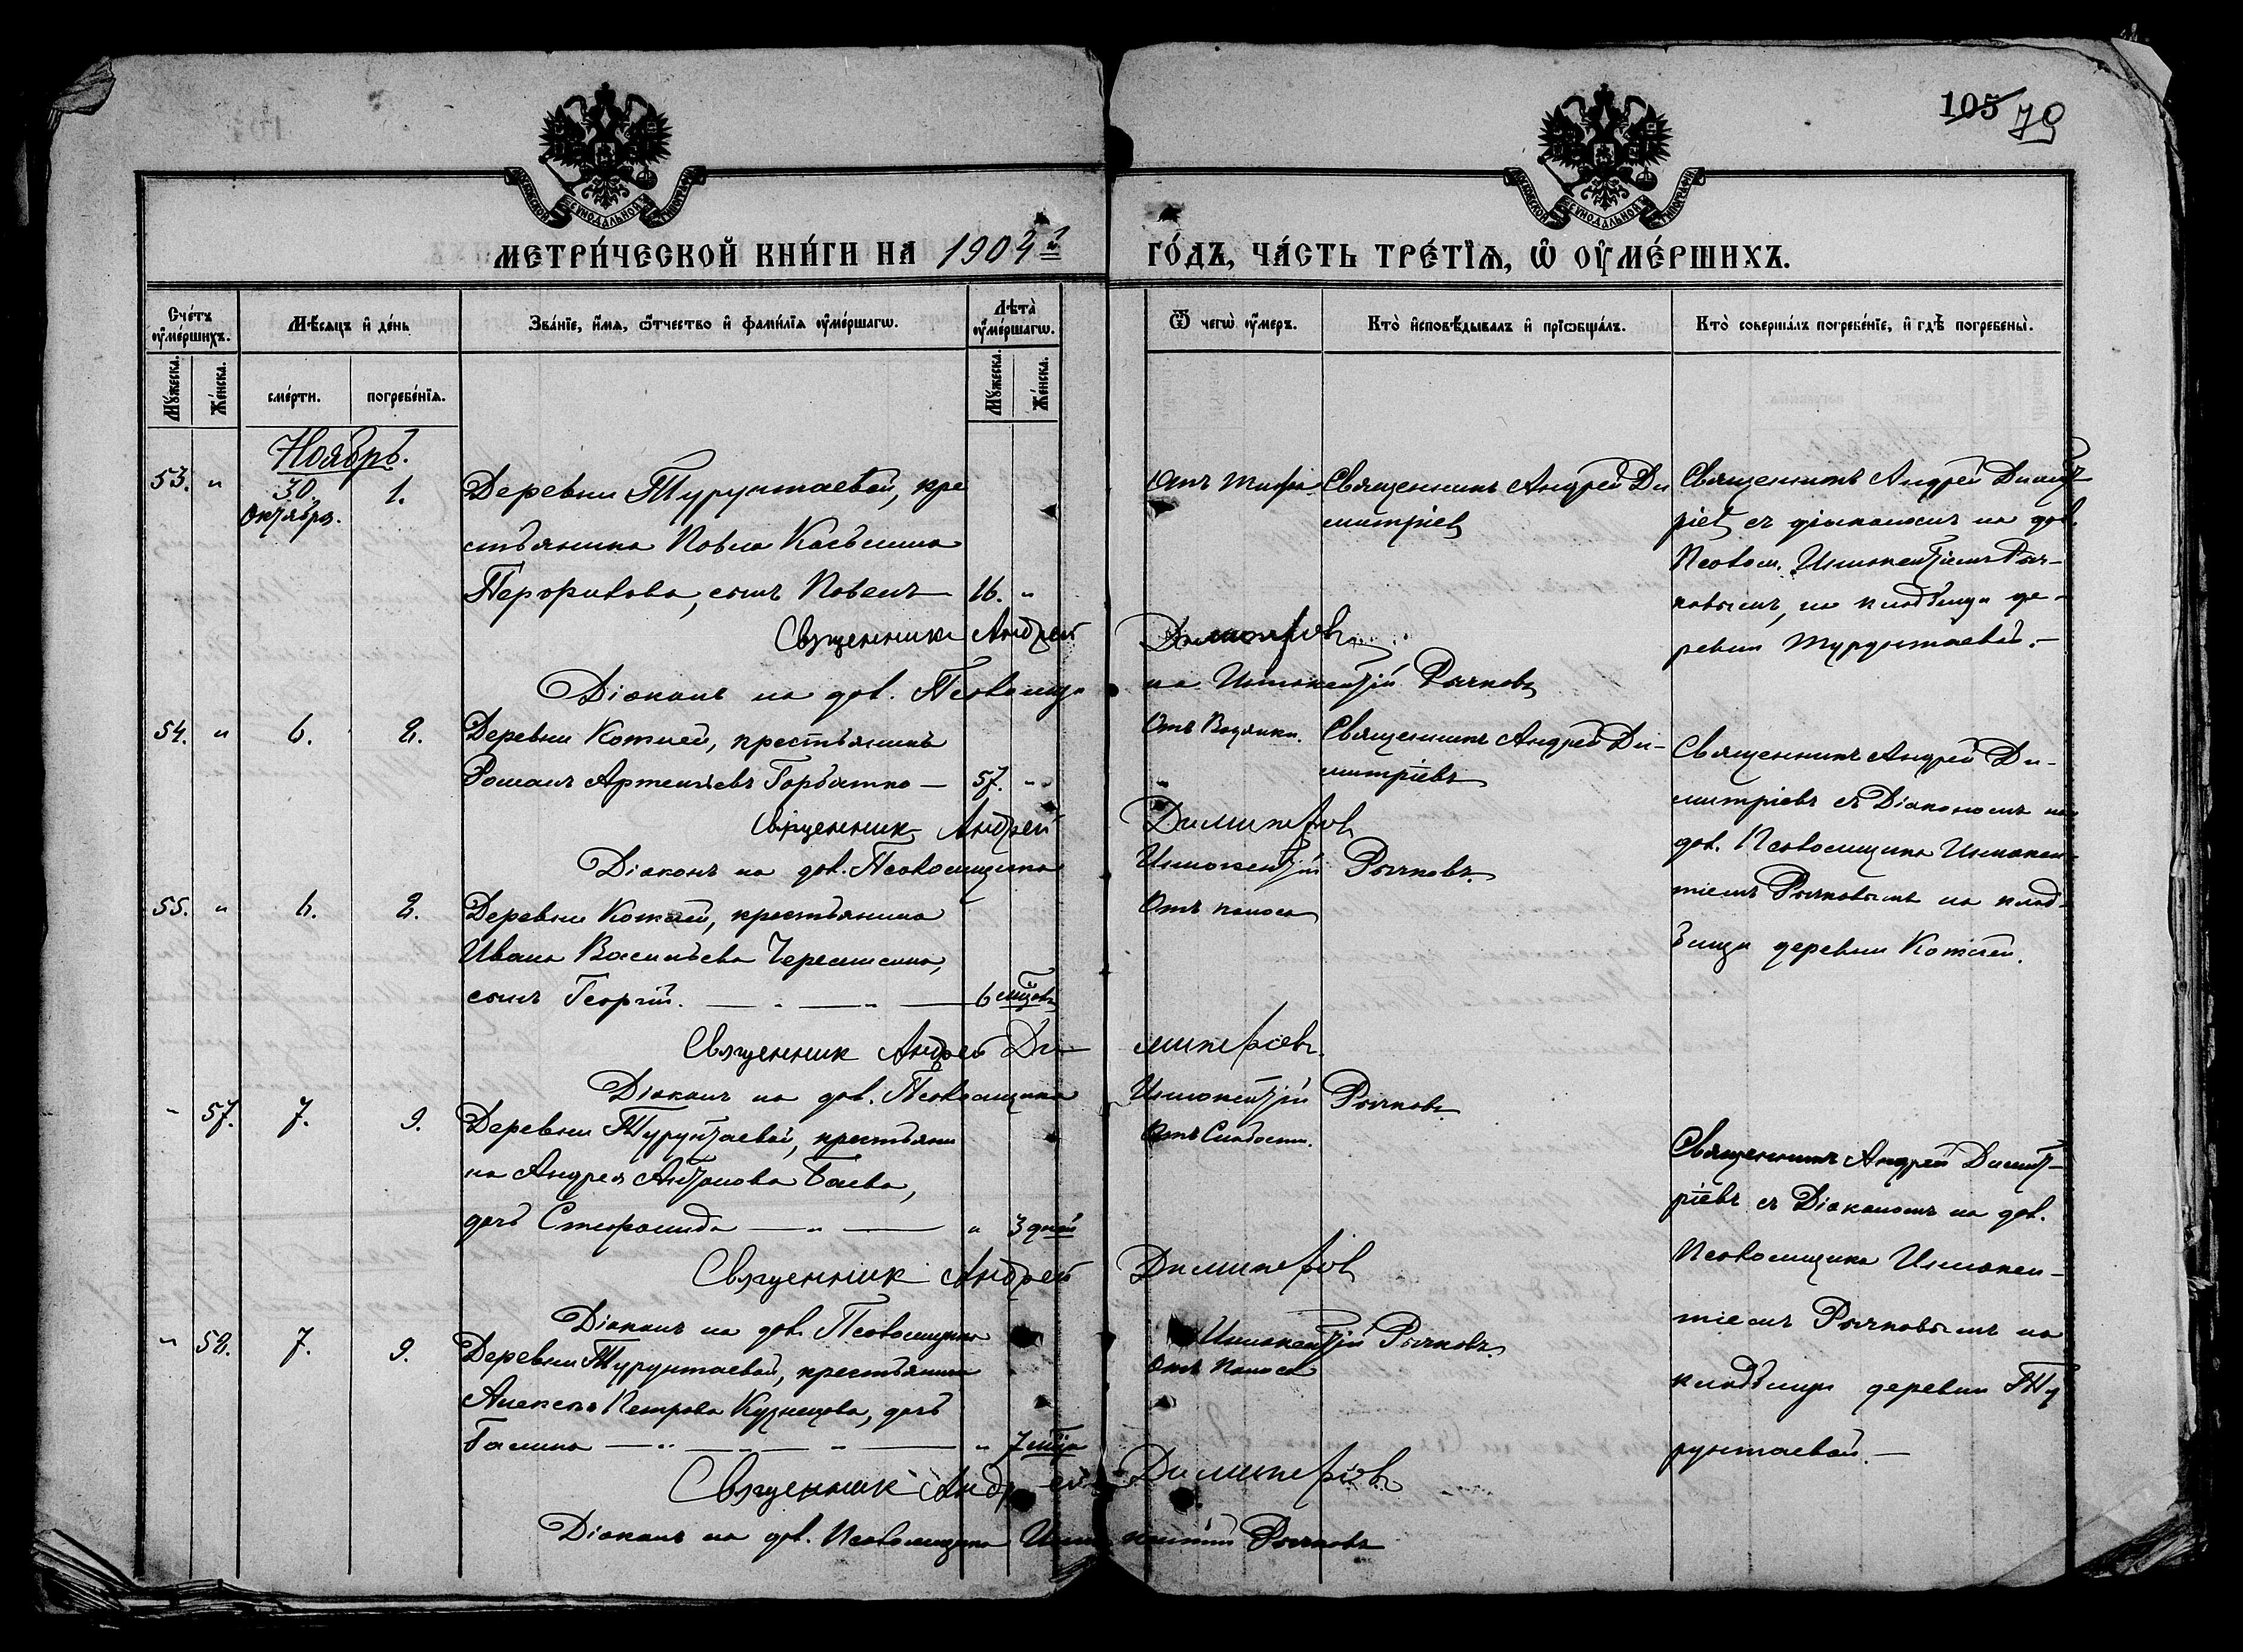 105 79
МОСКОВСКОЙ СѴНОДАЛЬНОЙ ТИПОГРАФІИ
МОСКОВСКОЙ СѴНОДАЛЬНОЙ ТИПОГРАФІИ
МЕТРИ́ЧЕСКОЙ КНИ́ГИ НА 1903й
ГО́ДЪ, ЧА́СТЬ ТРЕ́ТЇѦ, Ѡ҆ ОУ҆МЕ́РШИХЪ.
Сче́тъ оу҆ме́ршихъ.
Мѣ́сѧцъ и҆ де́нь
Зва́нїе, и҆́мѧ, ѻ҆́тчество и҆ фами́лїѧ оу҆ме́ршагѡ.
Лѣта̀ оу҆ме́ршагѡ.
Ѿ чегѡ̀ оу҆́меръ.
Кто̀ и҆сповѣ́дывалъ и҆ прїѡбща́лъ.
Кто̀ соверша́лъ погребе́нїе, и҆ гдѣ̀ погребены̀.
Мꙋ́жеска.
Же́нска.
сме́рти.
погребе́нїѧ.
Мꙋ́жеска.
Же́нска.
Ноябрь.
53. " 30. Октября. 1.
Деревни Турунтаевой, кре
стьянина
сынъ Павелъ 16. "
Отъ тифа
Священникъ Андрей Ди
митріев
Священникъ Андрей Димит
ріев съ діакономъ на дол.
Псалом. Иннокентіемъ Рыч-
ковымъ, на кладбищѣ де-
ревни Турунтаевой.—
Священникъ Андрей Димитріев
Діаконъ на дол. Псаломщи
ка Иннокентій Рычковъ
54. " 6. 8.
Деревни Котѣей, крестьянинъ
Романъ Артемьевъ Горбатко — 57. "
Отъ Водянки.
Священникъ Андрей Ди-
митріевъ
Священникъ Андрей Ди-
митріевъ съ Діакономъ на
дол. Псаломщика Иннокен-
тіемъ Рычковымъ на клад-
бищѣ деревни Котѣей.
Священникъ Андрей Димитріев
Діаконъ на дол. Псаломщика Иннокентій Рычковъ
55. " 6. 8.
Деревни Котѣей, крестьянина
Ивана Васильева Черемисина,
сынъ Георгій. — " — " — 6 мцовъ
Отъ поноса
Священник Андрей Димитріевъ.
Діаконъ на дол. Псаломщика Иннокентій Рычковъ
" 57. 7. 9.
Деревни Турунтаевой, крестьяни
на Андрея Антонова Баева,
дочь Стефанида — " — " 3 дней
Отъ Слабости.
Священникъ Андрей Димит-
ріевъ съ Діакономъ на дол.
Псаломщика Иннокен-
тіемъ Рычковымъ на
кладбищѣ деревни Ту
рунтаевой.—
Священник Андрей Димитріев
Діаконъ на дол. Псаломщика
Иннокентій Рычковъ.
" 58. 7. 9.
Деревни Турунтаевой, крестьянина
Алексѣя Петрова Кузнецова, дочь
Галина — " — " — " 7 мцъ
Отъ Поноса
Священник Андрей Димитріев
Діаконъ на дол. Псаломщика Иннокентій Рычковъ